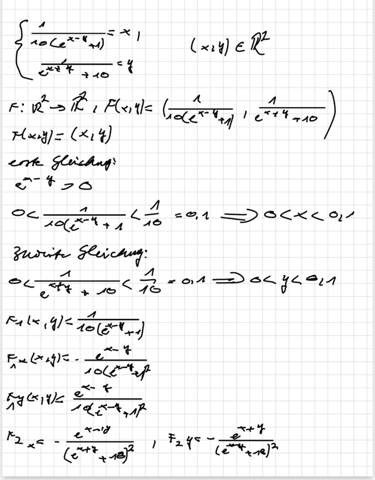 { 1/(10(e^{x-y}+1)) = x,
1/(e^{x+y}+10) = y
(x,y) ∈ ℝ²
F: ℝ² → ℝ², F(x,y) = (1/(10(e^{x-y}+1)), 1/(e^{x+y}+10))
F(x,y) = (x,y)
erste Gleichung:
e^{x-y} > 0
0 < 1/(10(e^{x-y}+1) < 1/10 = 0,1 ⟹ 0<x<0,1
Zweite Gleichung:
0 < 1/(e^{x+y}+10) < 1/10 = 0,1 ⟹ 0<y<0,1
F₁(x,y) = 1/(10(e^{x-y}+1))
F₁ₓ(x,y) = - e^{x-y}/(10(e^{x-y}+1)²)
F₁y(x,y) = e^{x-y}/(10(e^{x-y}+1)²)
F₂ₓ = - e^{x+y}/(e^{x+y}+10)², F₂y = - e^{x+y}/(e^{x+y}+10)²